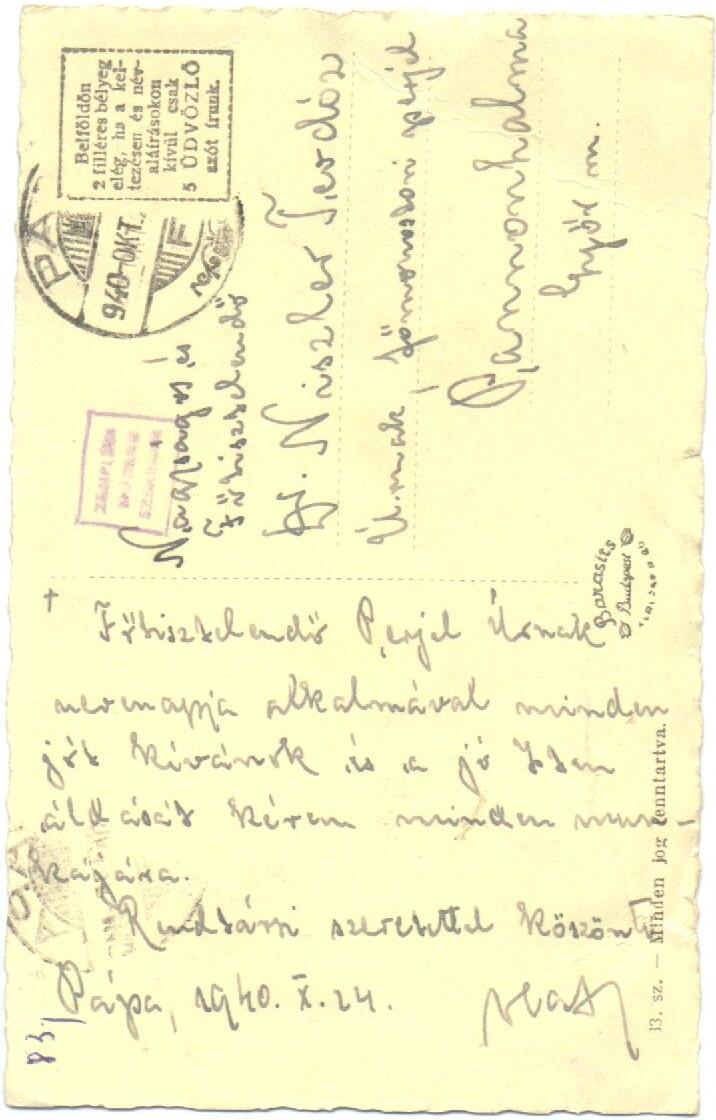 Belföldön
2 filléres bélyeg
elég, ha a kel-
tezésen és név-
aláírásokon
kívül csak
5 ÜDVÖZLŐ
szót írunk.
PÁ
940-OKT.
Nagyságos és
Főtisztelendő
Niszler Teodóz
Úrnak, főmonostori perjel
Pannonhalma
Győr m.
Barasits
Budapest
+
Főtisztelendő Perjel Úrnak
nevenapja alkalmával minden
jót kívánok és a jó Isten
áldását kérem minden mun-
kájára.
Rendtársi szeretettel köszönti
Pápa, 1940. X. 24.
83/
33. sz. — Minden jog fenntartva.